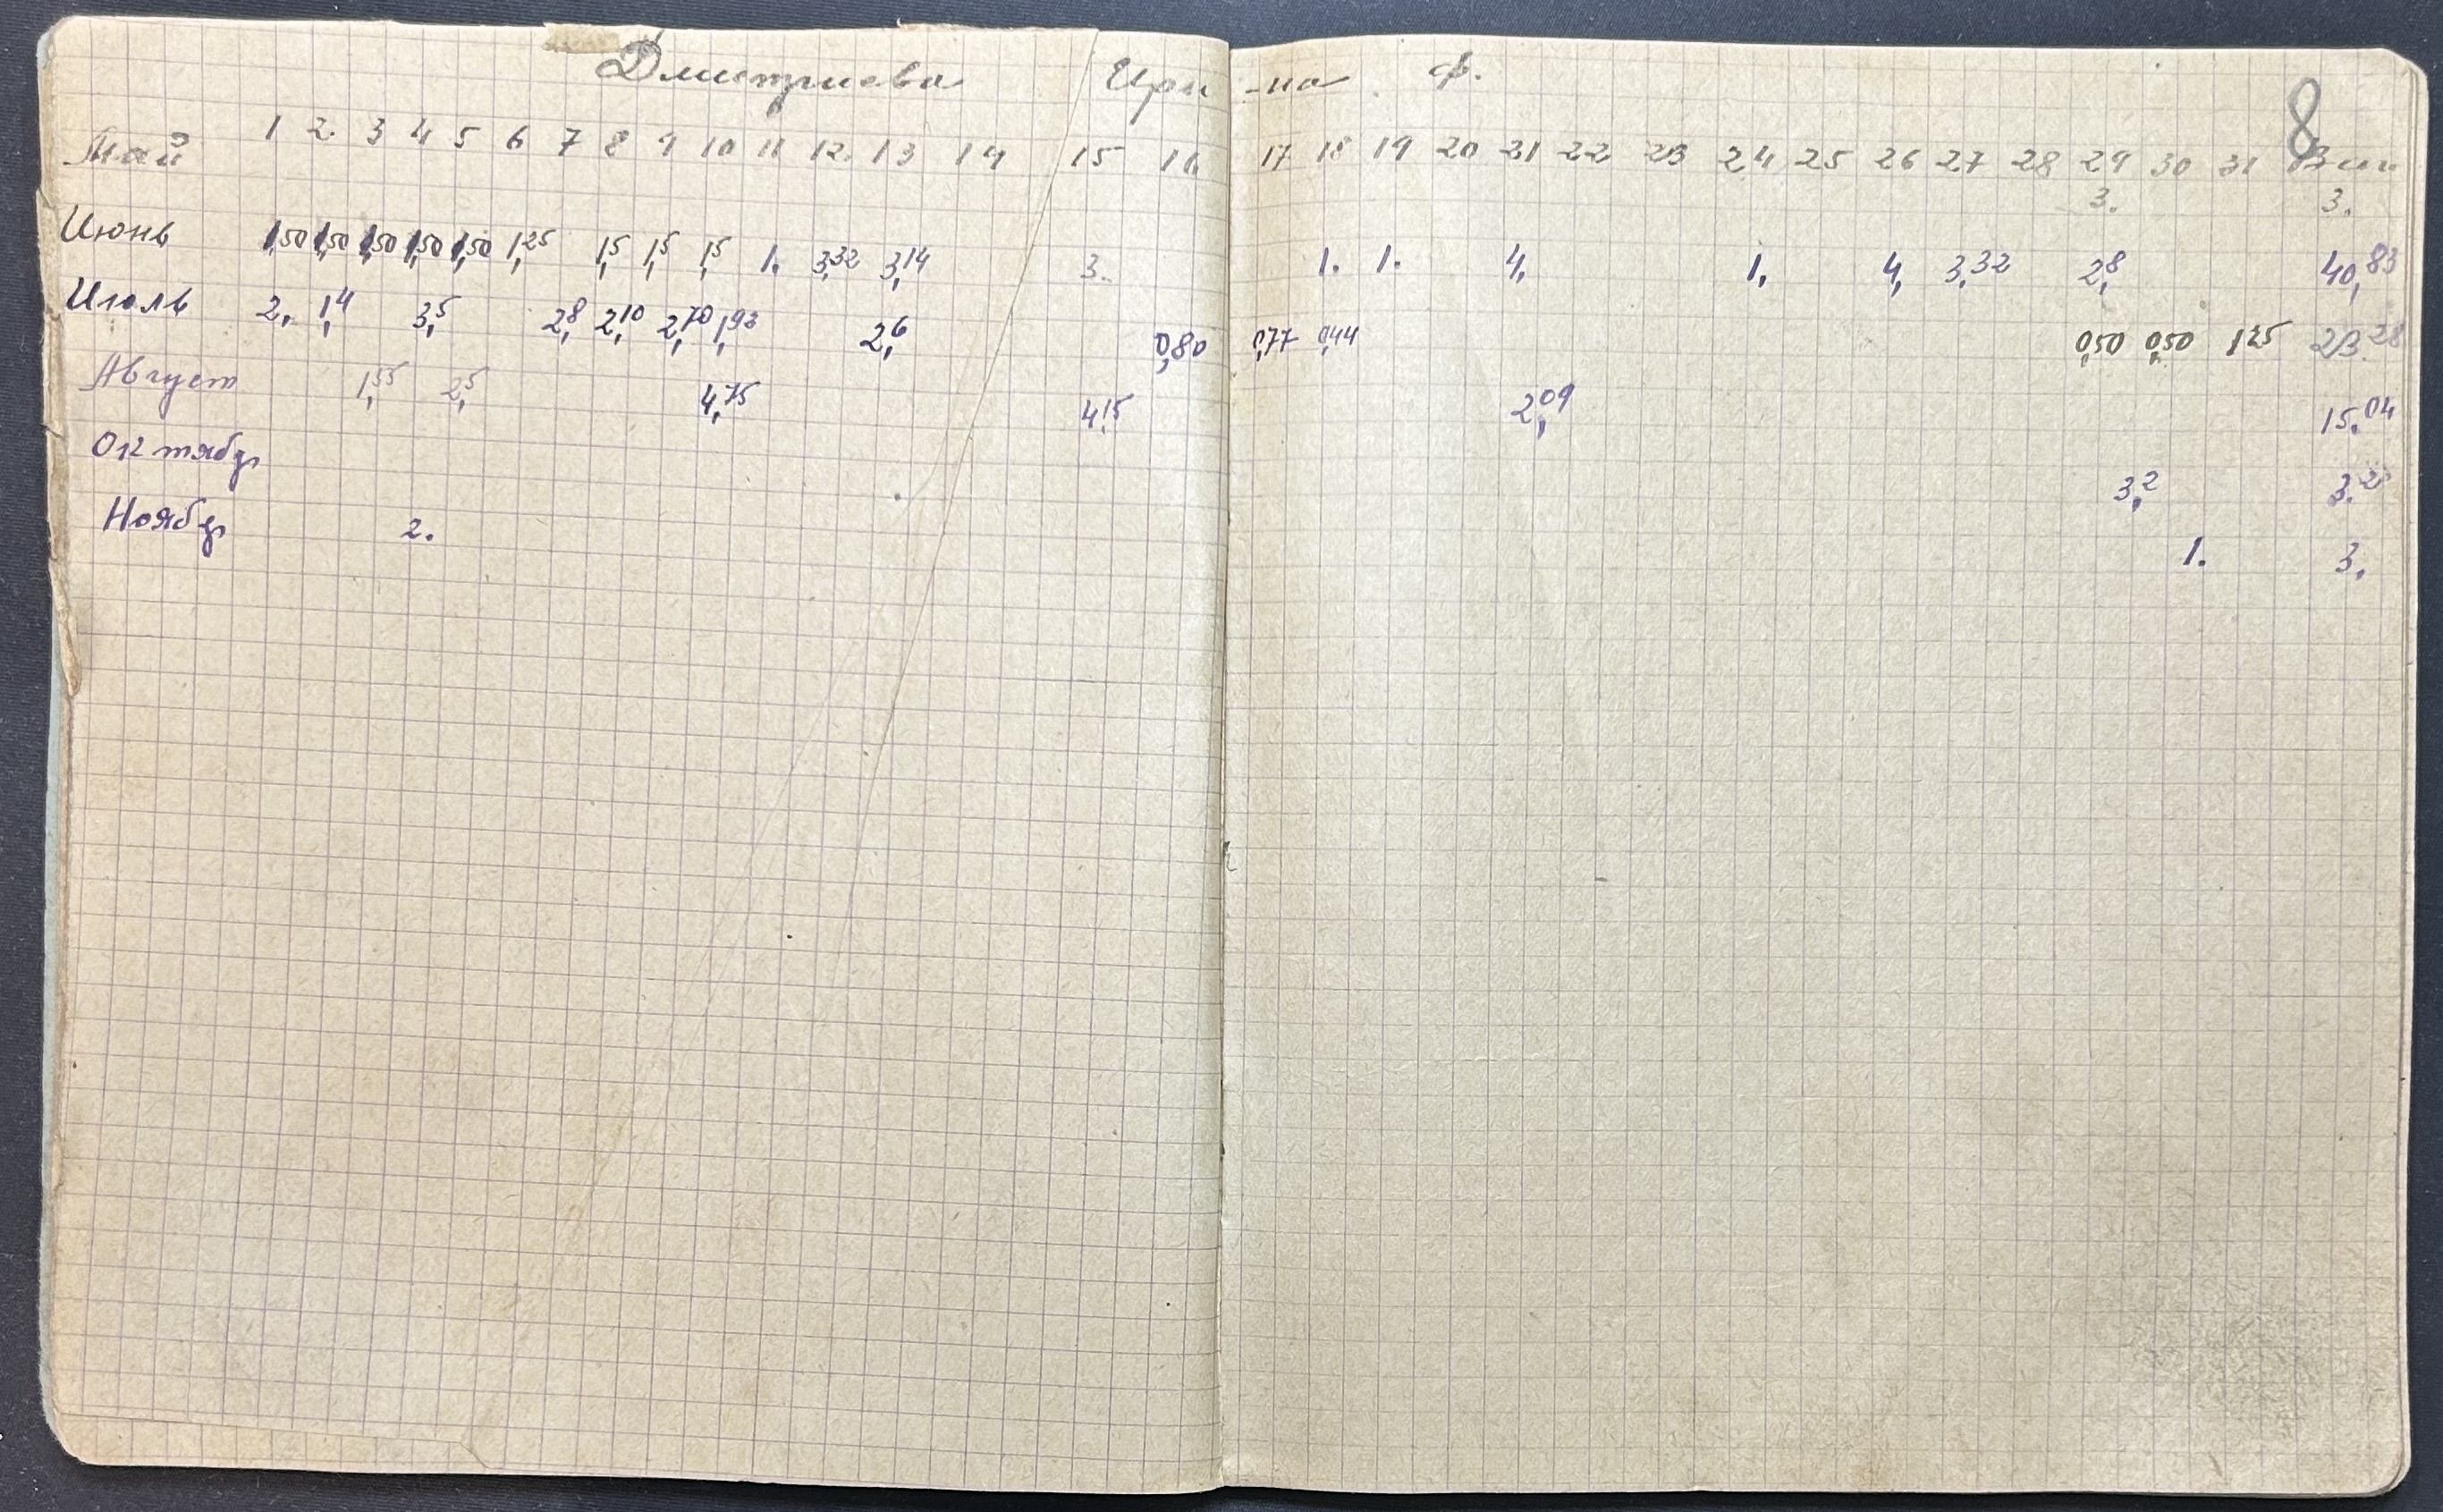 Дмитриева Ири-на Ф. 8
Май 1 2. 3 4 5 6 7 8 9 10 11 12. 13 14 15 16 17 18 19 20 21 22 23 24 25 26 27 28 29 30 31
3. 3.
Июнь 1,50 1,50 1,50 1,50 1,50 1,25 1,5 1,5 1,5 1. 3,32 3,14 3. 1. 1. 4, 1, 4, 3,32 2,8 40,83
Июль 2, 1,4 3,5 2,8 2,10 2,70 1,93 2,6 0,80 0,77 0,44 0,50 0,50 1 25 23.28
Август 1,55 2,5 4,75 4,15 2,09 15.04
Октябр 3,2 3.2
Ноябр 2. 1. 3,